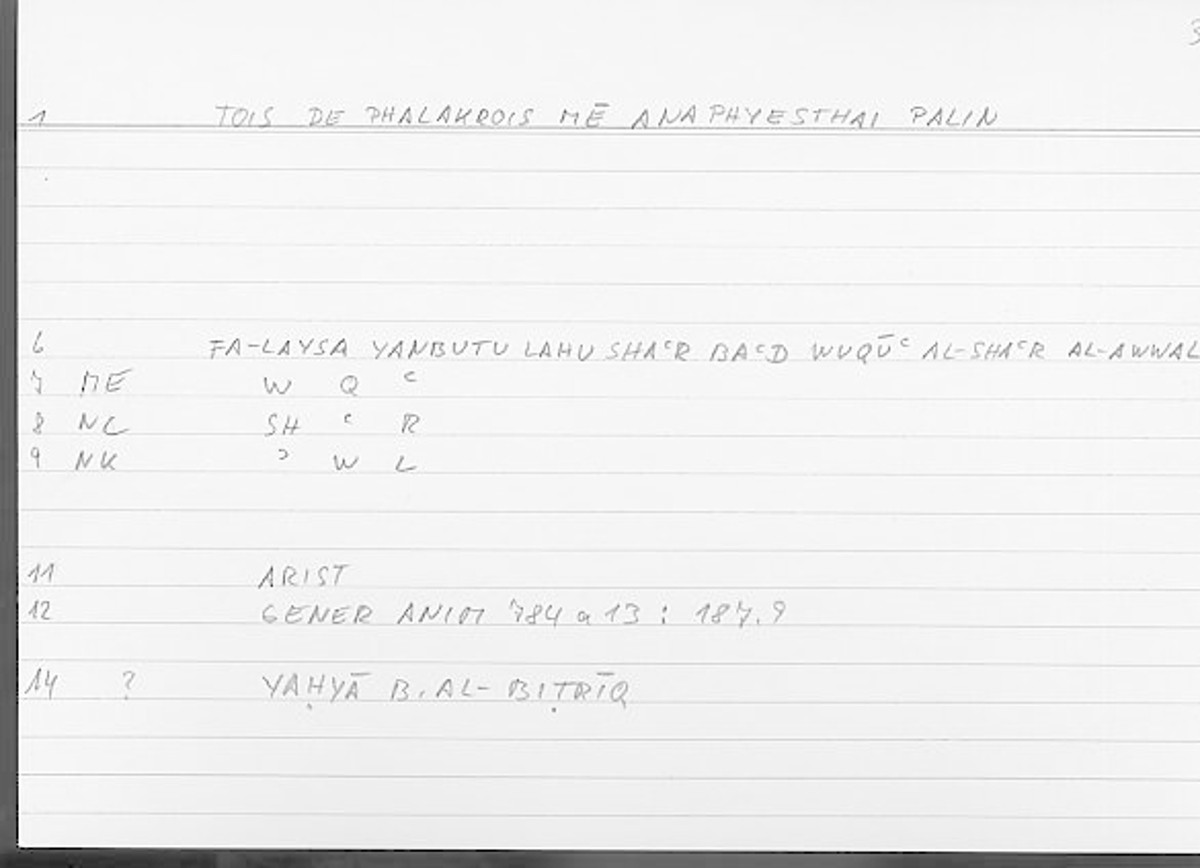 3
1 TOIS DE PHALAKROIS MĒ ANAPHYESTHAI PALIN
6 FA-LAYSA YANBUTU LAHU SHAᶜR BAᶜD WUQŪᶜ AL-SHAᶜR AL-AWWAL
7 ME W Q ᶜ
8 NC SH ᶜ R
9 NK ᵓ W L
11 ARIST
12 GENER ANIM 784 a 13 : 187.9
14 ? YAḤYĀ B. AL-BIṬRĪQ